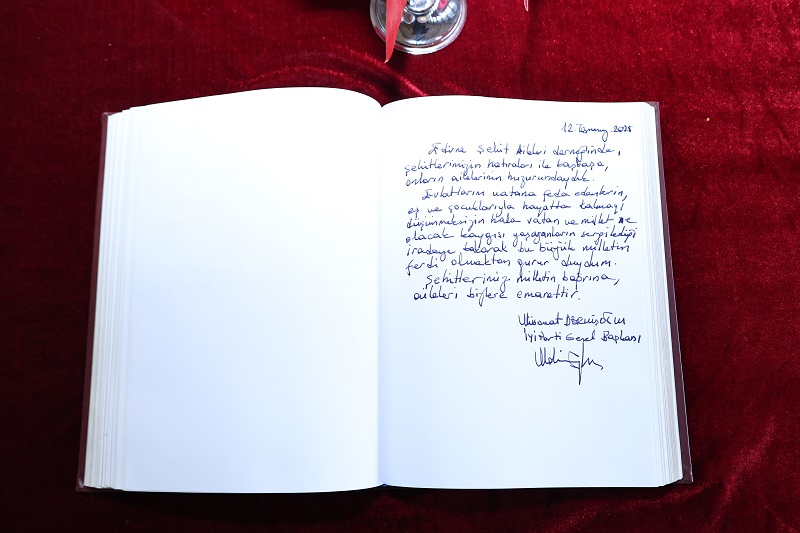 12 Temmuz 2025
Edirne Şehit Aileleri derneğinde,
şehitlerimizin hatıraları ile başbaşa,
onların ailelerinin huzurundaydık.
Evlatlarını vatana feda edenlerin,
eş ve çocuklarıyla hayatta kalmayı
düşünmeksizin hala vatan ve millet ne
olacak kaygısı yaşayanların sergilediği
iradeye bakarak bu büyük milletin
ferdi olmaktan gurur duydum.
Şehitlerimiz milletin bağrına,
aileleri bizlere emanettir.
Müsavat DERVİŞOĞLU
İYİ Parti Genel Başkanı